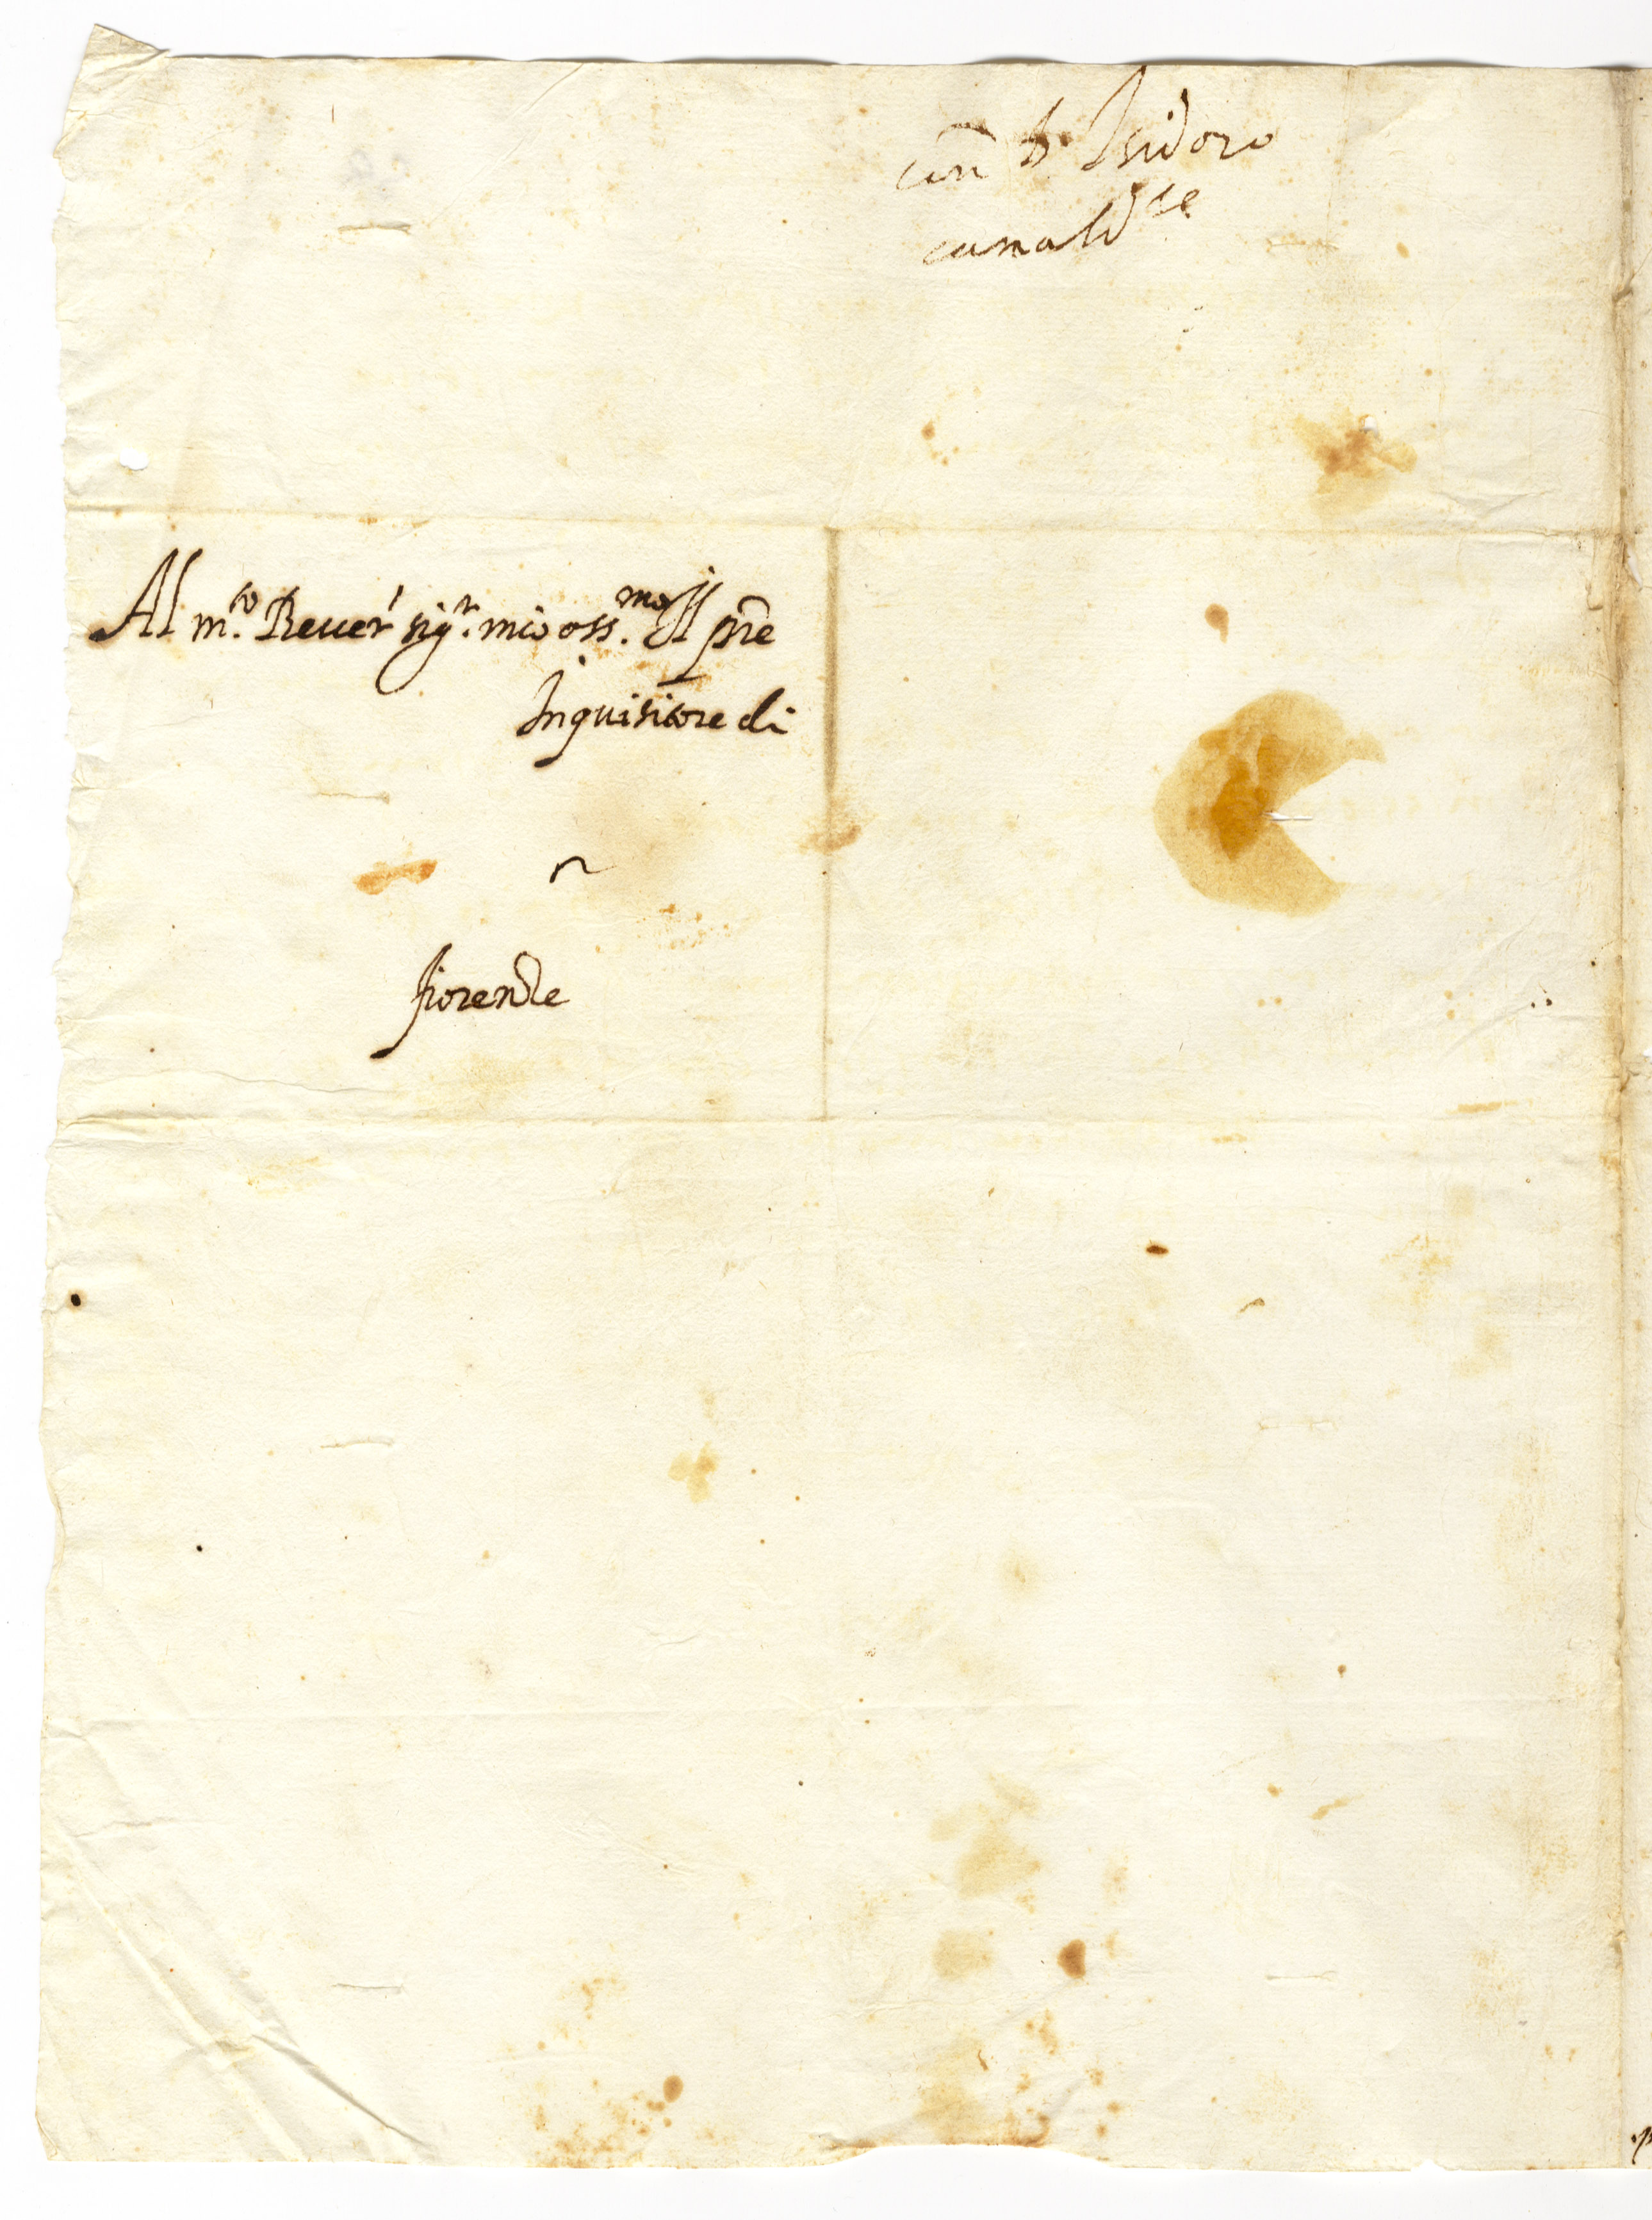 con D. Isidoro
camald.se
Al m.to Reuer. sig.r mio oss.mo Il pre
Inquisitore di
fiorenze